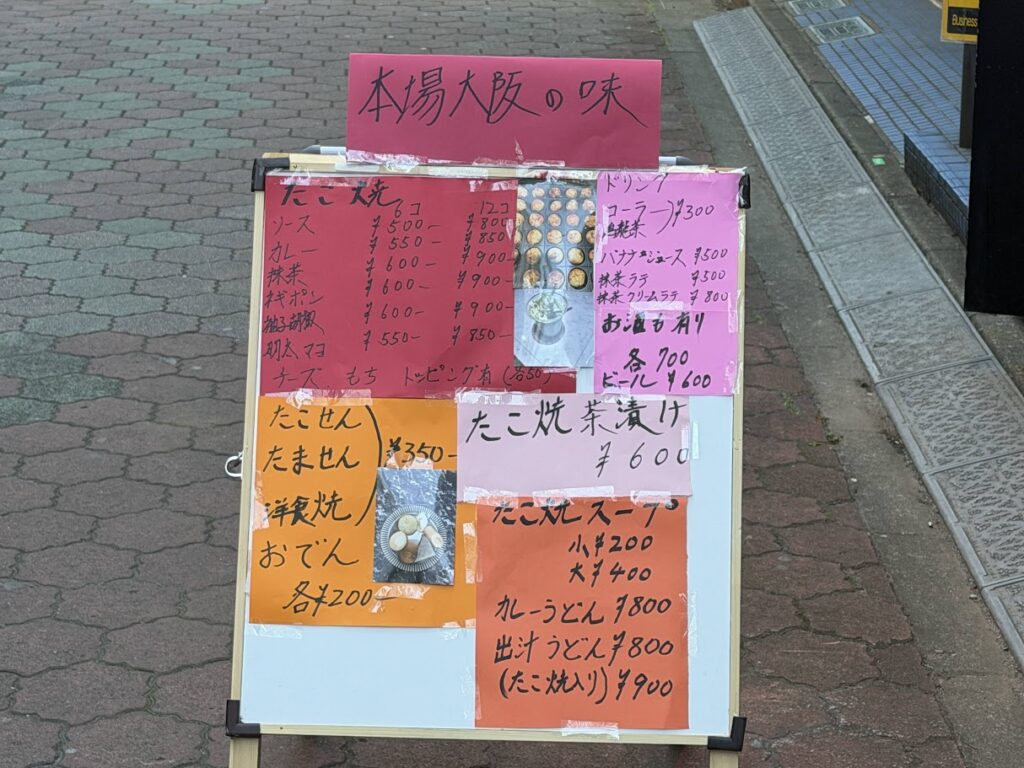 本場大阪の味
たこ焼
6コ 12コ
ソース ¥500- ¥800-
カレー ¥550- ¥850-
抹茶 ¥600- ¥900-
ネギポン ¥600- ¥900-
柚子胡椒 ¥600- ¥900-
明太マヨ ¥550- ¥850-
チーズ もち トッピング有(各50)
ドリンク
コーラー
烏龍茶 ¥300
バナナジュース ¥500
抹茶ラテ ¥500
抹茶クリームラテ ¥800
お酒も有り
各700
ビール ¥600
たこせん
たません ¥350-
洋食焼
おでん
各¥200-
たこ焼茶漬け
¥600
たこ焼スープ
小¥200
大¥400
カレーうどん ¥800
出汁うどん ¥800
(たこ焼入り) ¥900
Business